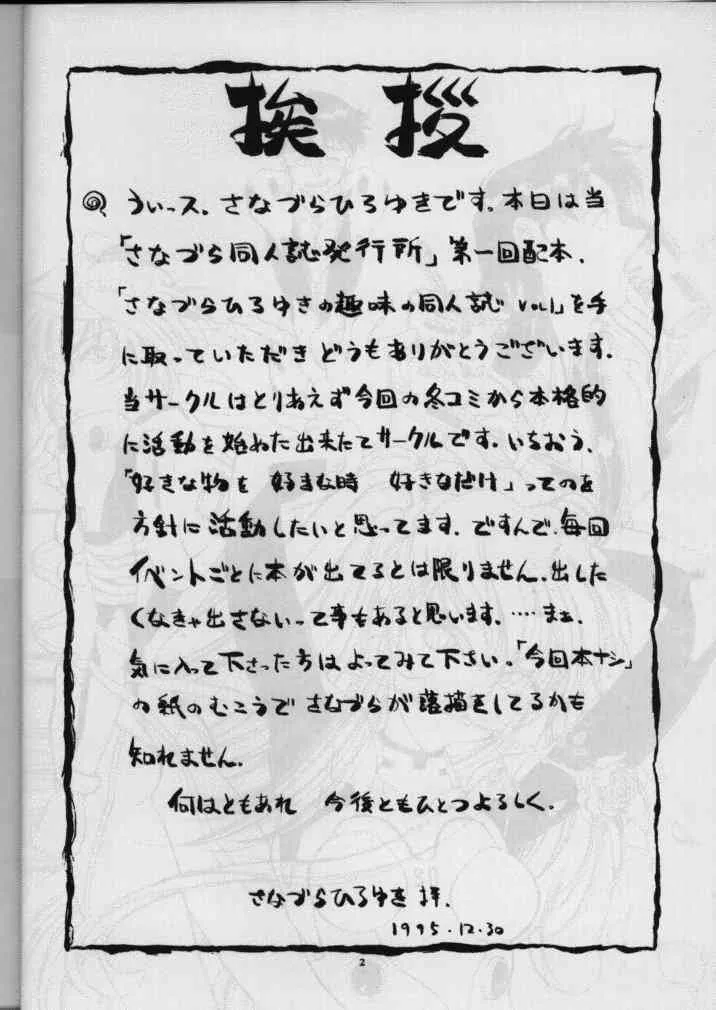 挨拶
うぃーッス. さなづらひろゆきです. 本日は当
「さなづら同人誌発行所」第一回配本、
「さなづらひろゆきの趣味の同人誌 Vol.1」を手
に取っていただき どうもありがとうございます.
当サークルはとりあえず今回の冬コミから本格的
に活動を始めた出来たてサークルです. いちおう、
「好きな物を 好きな時 好きなだけ」ってのを
方針に活動したいと思ってます. ですんで、毎回
イベントごとに本が出てるとは限りません. 出した
くなきゃ出さないって事もあると思います. …… まぁ、
気に入って下さった方はよってみて下さい.「今回本ナシ」
の紙のむこうで さなづらが落描きしてるかも
知れません.
何はともあれ 今後ともひとつよろしく.
さなづらひろゆき 拝.
1995.12.30
2